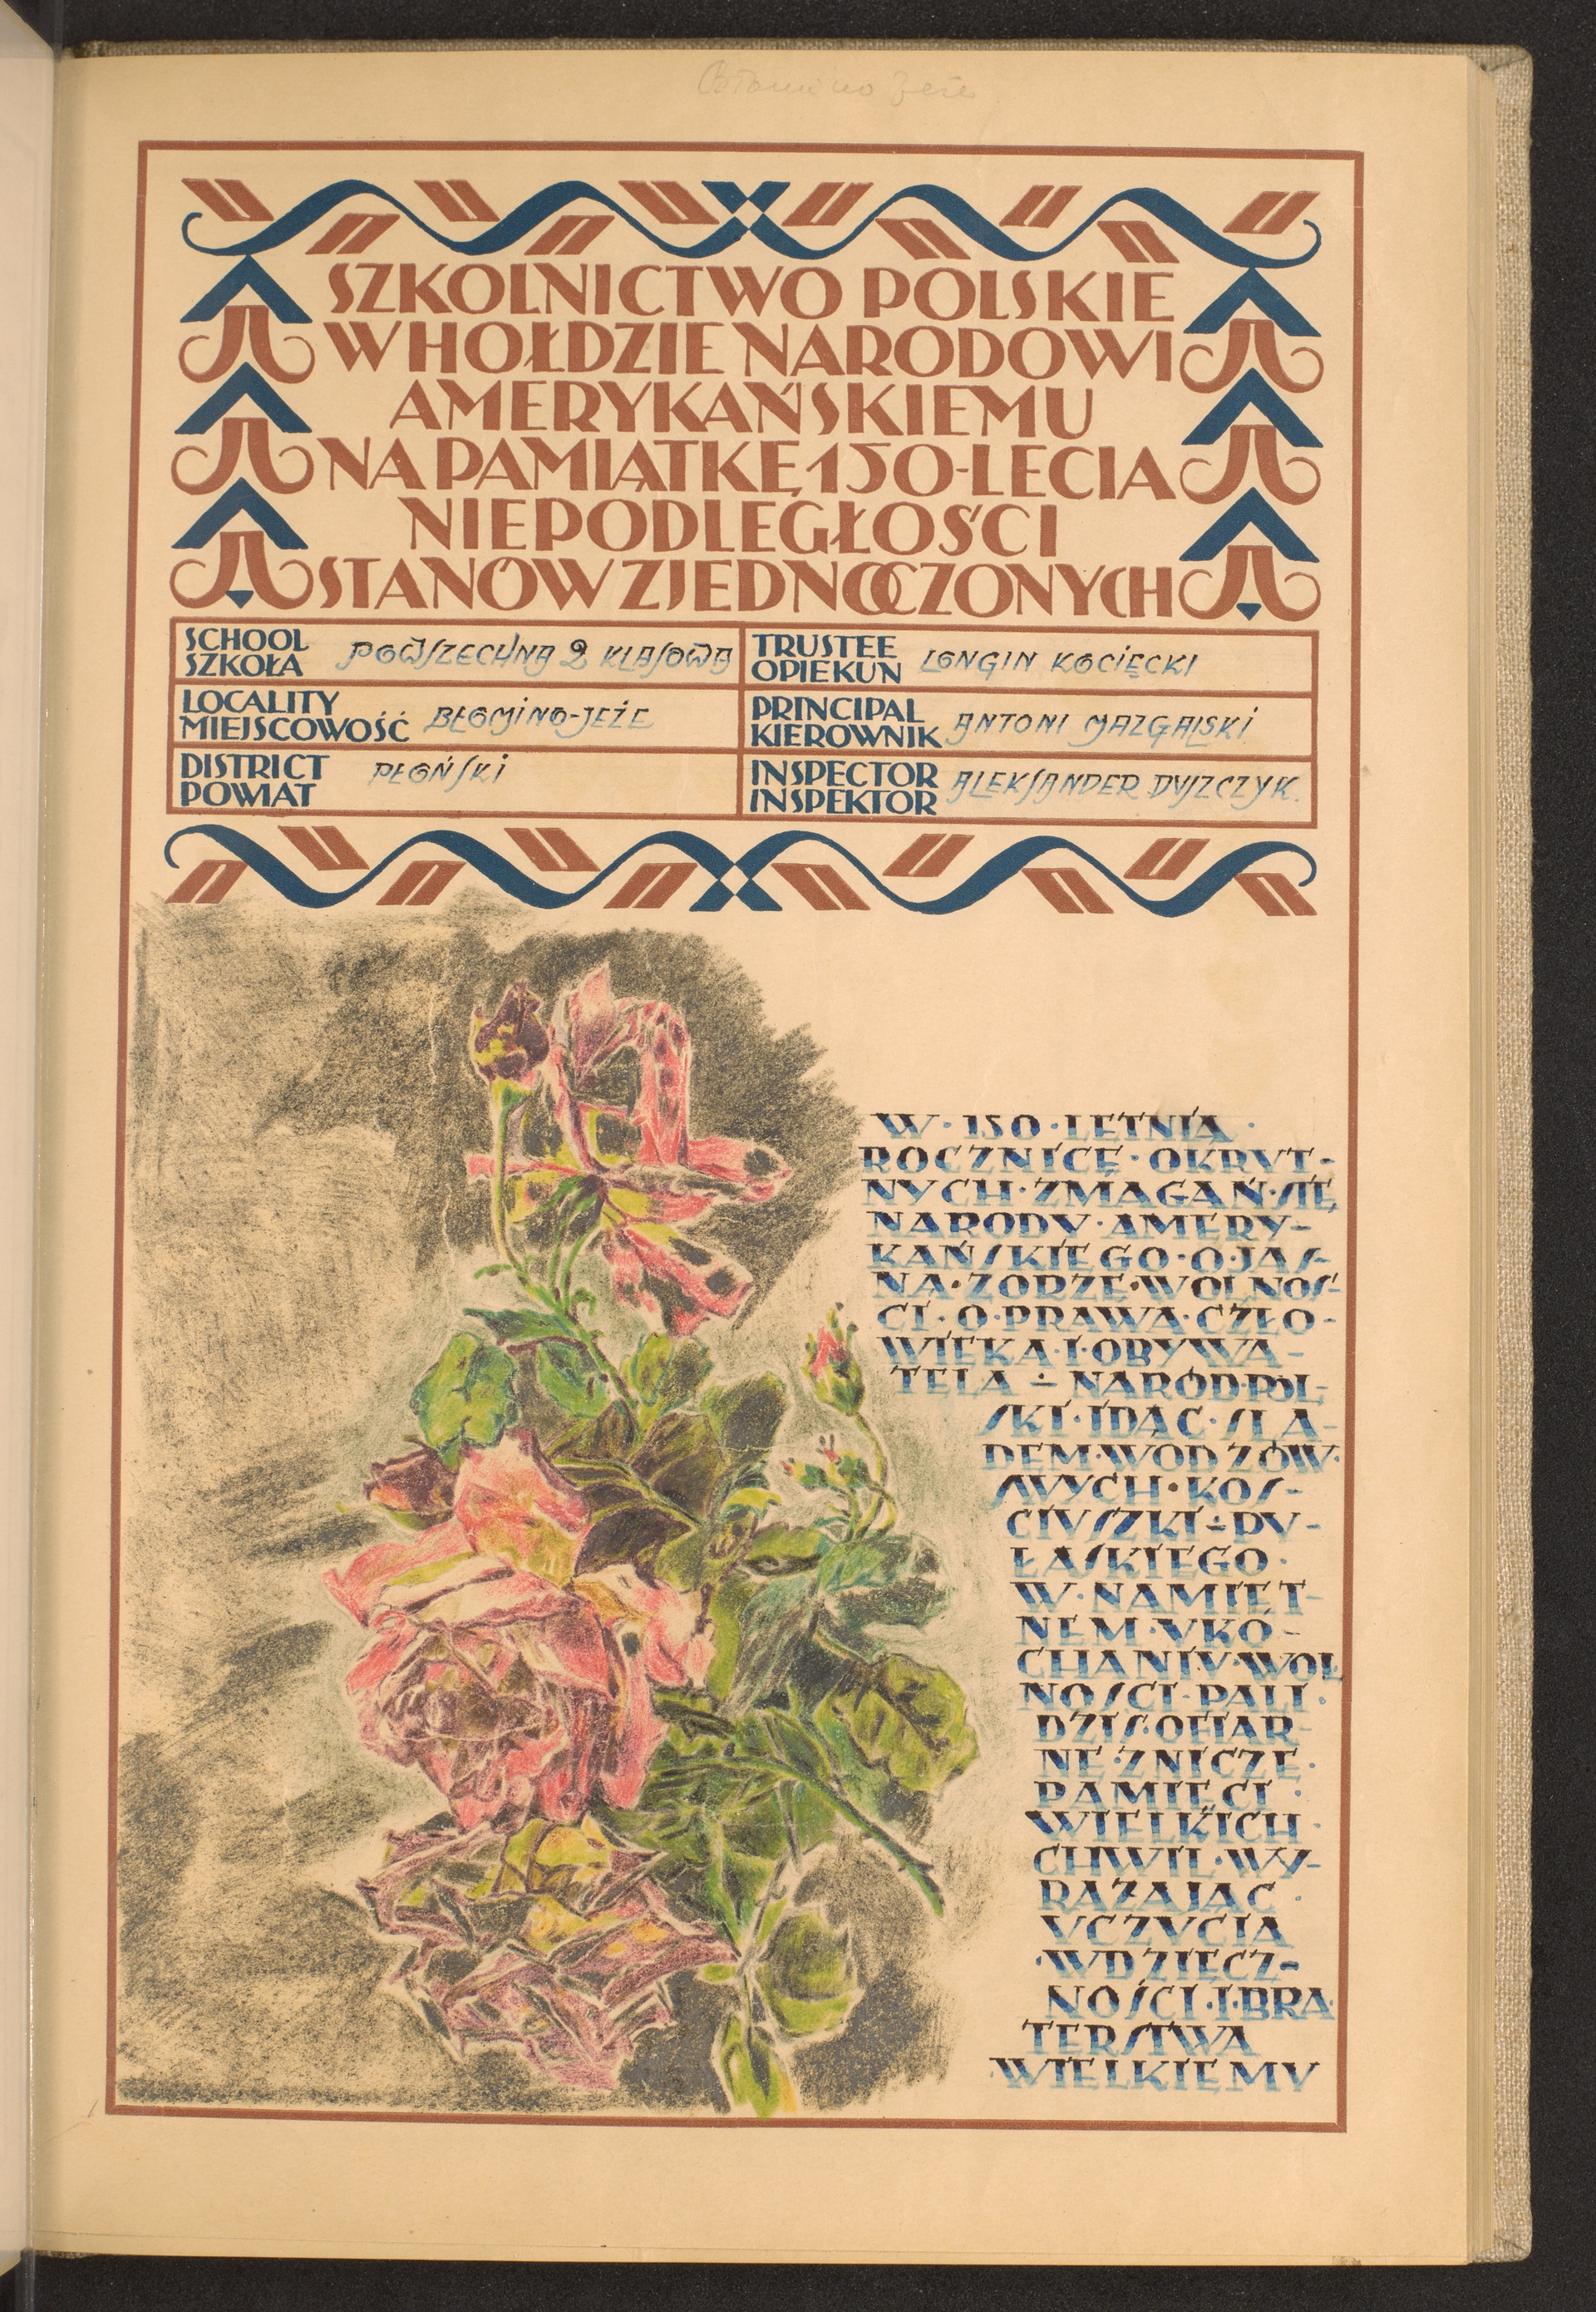 Błomino Jeże
SZKOLNICTWO POLSKIE
W HOŁDZIE NARODOWI
AMERYKAŃSKIEMU
NA PAMIĄTKĘ 150-LECIA
NIEPODLEGŁOŚCI
STANÓW ZJEDNOCZONYCH
SCHOOL
SZKOŁA
POWSZECHNA 2 KLASOWA
TRUSTEE
OPIEKUN
LONGIN KOCIĘCKI
LOCALITY
MIEJSCOWOŚĆ
BŁOMINO-JEŻE
PRINCIPAL
KIEROWNIK
ANTONI MAZGALSKI
DISTRICT
POWIAT
PŁOŃSKI
INSPECTOR
INSPEKTOR
ALEKSANDER DUSZCZYK.
W · 150 · LETNIĄ ·
ROCZNICĘ · OKRUT-
NYCH · ZMAGAŃ · SIĘ
NARODU · AMERY-
KAŃSKIEGO · O · JAS-
NĄ · ZORZĘ · WOLNOŚ-
CI · O · PRAWA · CZŁO-
WIEKA · I · OBYWA-
TELA ÷ NARÓD POL-
SKI · IDĄC · ŚLA-
DEM · WODZÓW ·
SWYCH · KOŚ-
CIUSZKI ÷ PU-
ŁASKIEGO ·
W · NAMIĘT-
NEM · UKO-
CHANIU · WOL
NOŚCI · PALI ·
DZIŚ · OFIAR-
NE · ZNICZE ·
PAMIĘCI ·
WIELKICH ·
CHWIL · WY-
RAŻAJĄC ·
UCZUCIA
· WDZIĘCZ-
NOŚCI · I · BRA
TERSTWA
WIELKIEMU